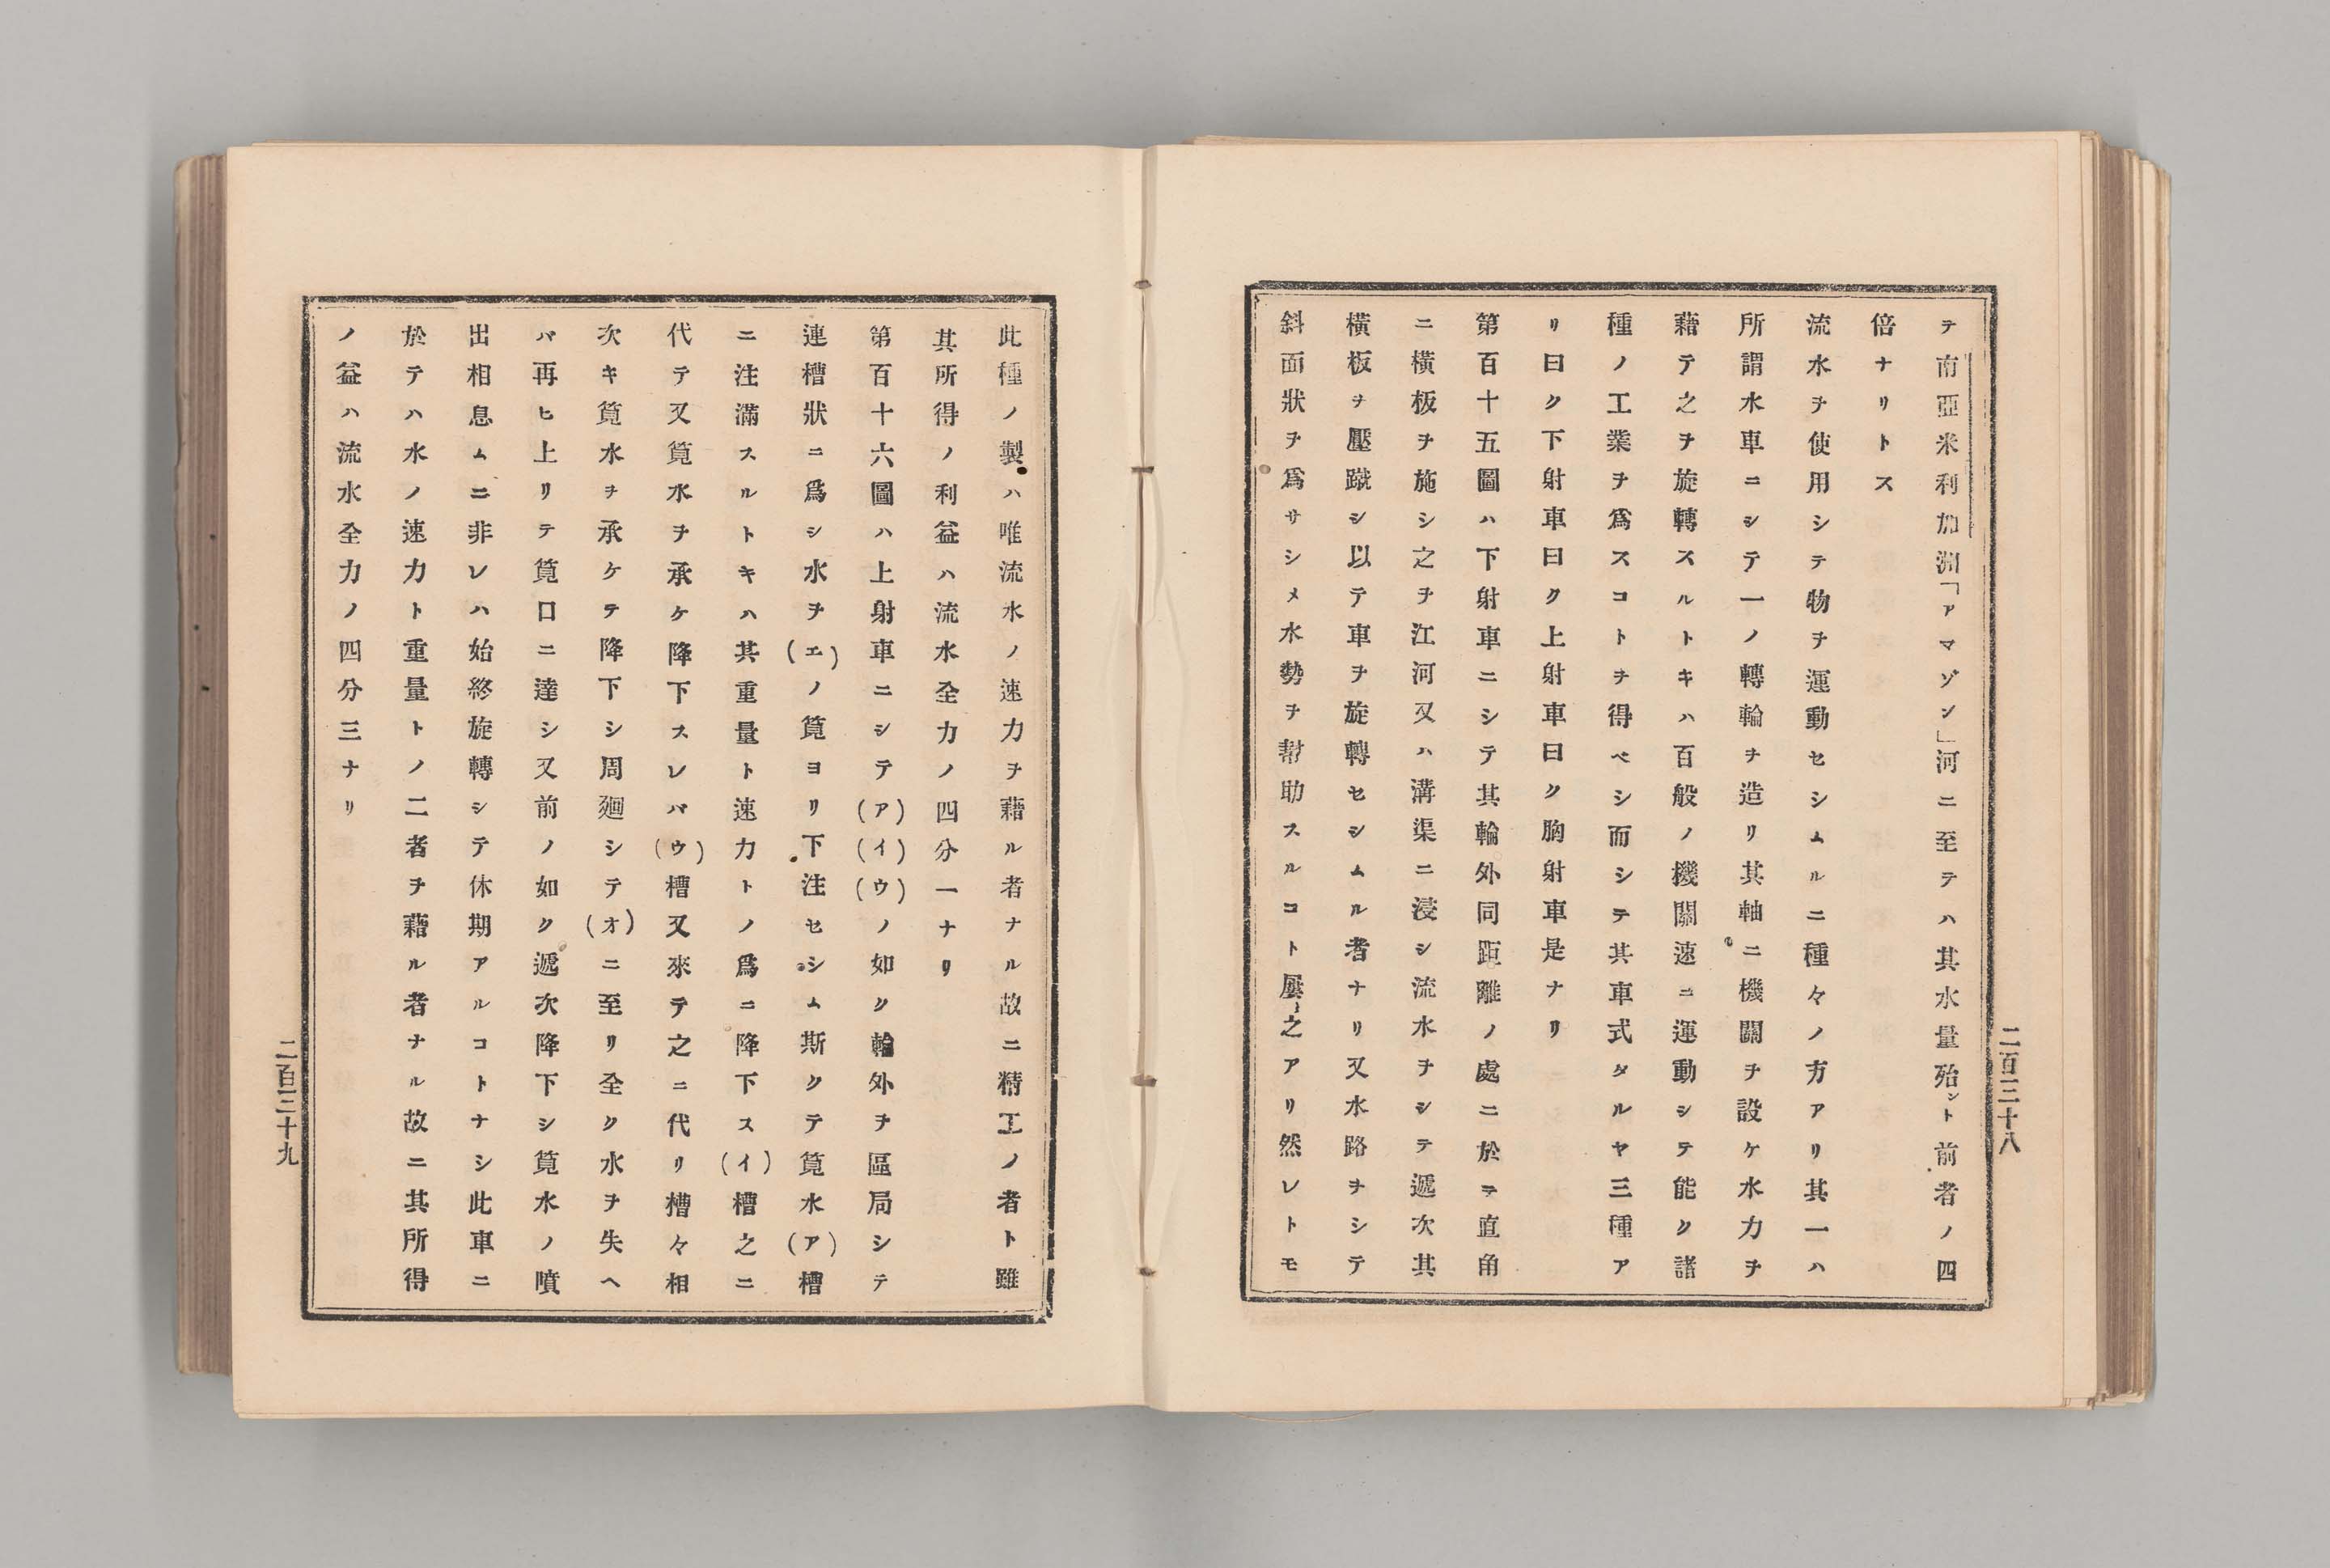 二百三十八
テ南亞米利加洲「アマゾン」河ニ至テハ其水量殆ント前者ノ四
倍ナリトス
流水ヲ使用シテ物ヲ運動セシムルニ種々ノ方アリ其一ハ
所謂水車ニシテ一ノ轉輪ヲ造リ其軸ニ機關ヲ設ケ水力ヲ
藉テ之ヲ旋轉スルトキハ百般ノ機關速ニ運動シテ能ク諸
種ノ工業ヲ爲スコトヲ得ベシ而シテ其車式タルヤ三種ア
リ曰ク下射車曰ク上射車曰ク胸射車是ナリ
第百十五圖ハ下射車ニシテ其輪外同距離ノ處ニ於テ直角
ニ橫板ヲ施シ之ヲ江河又ハ溝渠ニ浸シ流水ヲシテ遞次其
橫板ヲ壓蹴シ以テ車ヲ旋轉セシムル者ナリ又水路ヲシテ
斜面狀ヲ爲サシメ水勢ヲ幇助スルコト屢〻之アリ然レトモ
此種ノ製ハ唯流水ノ速力ヲ藉ル者ナル故ニ精工ノ者ト雖
其所得ノ利益ハ流水全力ノ四分一ナリ
第百十六圖ハ上射車ニシテ(ア)(イ)(ウ)ノ如ク輪外ヲ區局シテ
連槽狀ニ爲シ水ヲ(エ)ノ筧ヨリ下注セシム斯クテ筧水(ア)槽
ニ注滿スルトキハ其重量ト速力トノ爲ニ降下ス(イ)槽之ニ
代テ又筧水ヲ承ケ降下スレバ(ウ)槽又來テ之ニ代リ槽々相
次キ筧水ヲ承ケテ降下シ周廻シテ(オ)ニ至リ全ク水ヲ失ヘ
バ再ヒ上リテ筧口ニ達シ又前ノ如ク遞次降下シ筧水ノ噴
出相息ムニ非レハ始終旋轉シテ休期アルコトナシ此車ニ
於テハ水ノ速力ト重量トノ二者ヲ藉ル者ナル故ニ其所得
ノ益ハ流水全力ノ四分三ナリ
二百三十九